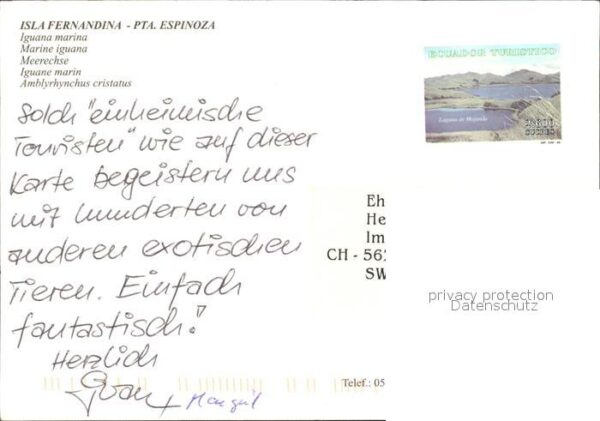 ISLA FERNANDINA - PTA. ESPINOZA
Iguana marina
Marine iguana
Meerechse
Iguane marin
Amblyrhynchus cristatus
ECUADOR TURISTICO
Laguna de Mojanda
SUCRES
Solch "einheimische
Touristen" wie auf dieser
Karte begeistern uns
mit hunderten von
anderen exotischen
Tieren. Einfach
fantastisch!
Herzlich
Eh
He
Im
CH - 562
SW
privacy protection
Datenschutz
Telef.: 05